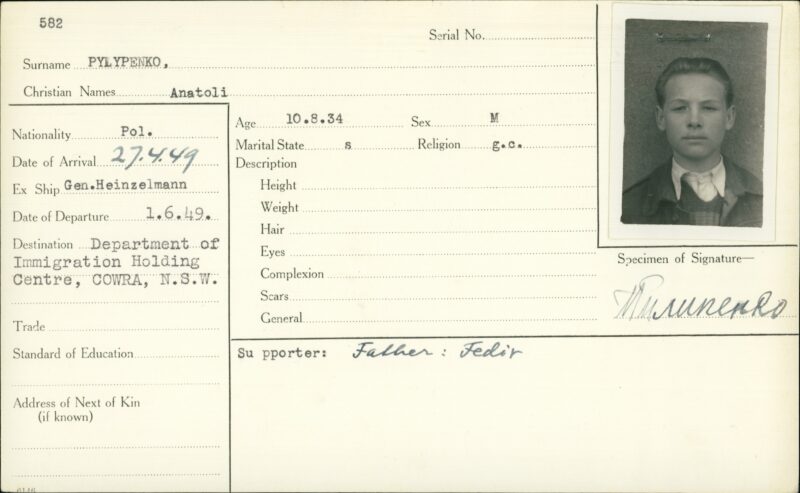 582
Serial No.
Surname PYLYPENKO,
Christian Names Anatoli
Nationality Pol.
Date of Arrival 27.4.49
Ex Ship Gen.Heinzelmann
Date of Departure 1.6.49.
Destination Department of
Immigration Holding
Centre, COWRA, N.S.W.
Trade
Standard of Education
Address of Next of Kin
(if known)
Age 10.8.34 Sex M
Marital State s Religion g.c.
Description
Height
Weight
Hair
Eyes
Complexion
Scars
General
Su pporter: Father: Fedir
Specimen of Signature—
Пилипенко